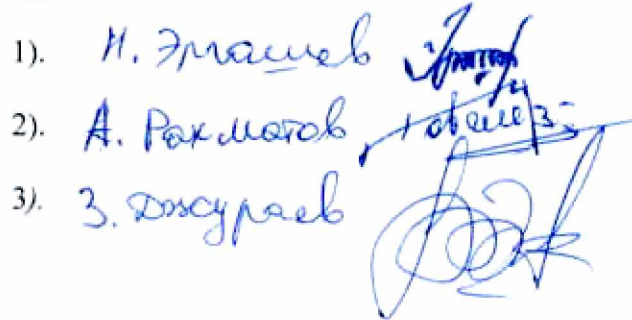 1). Н. Эргашев
2). А. Рахматов
3). З. Джураев